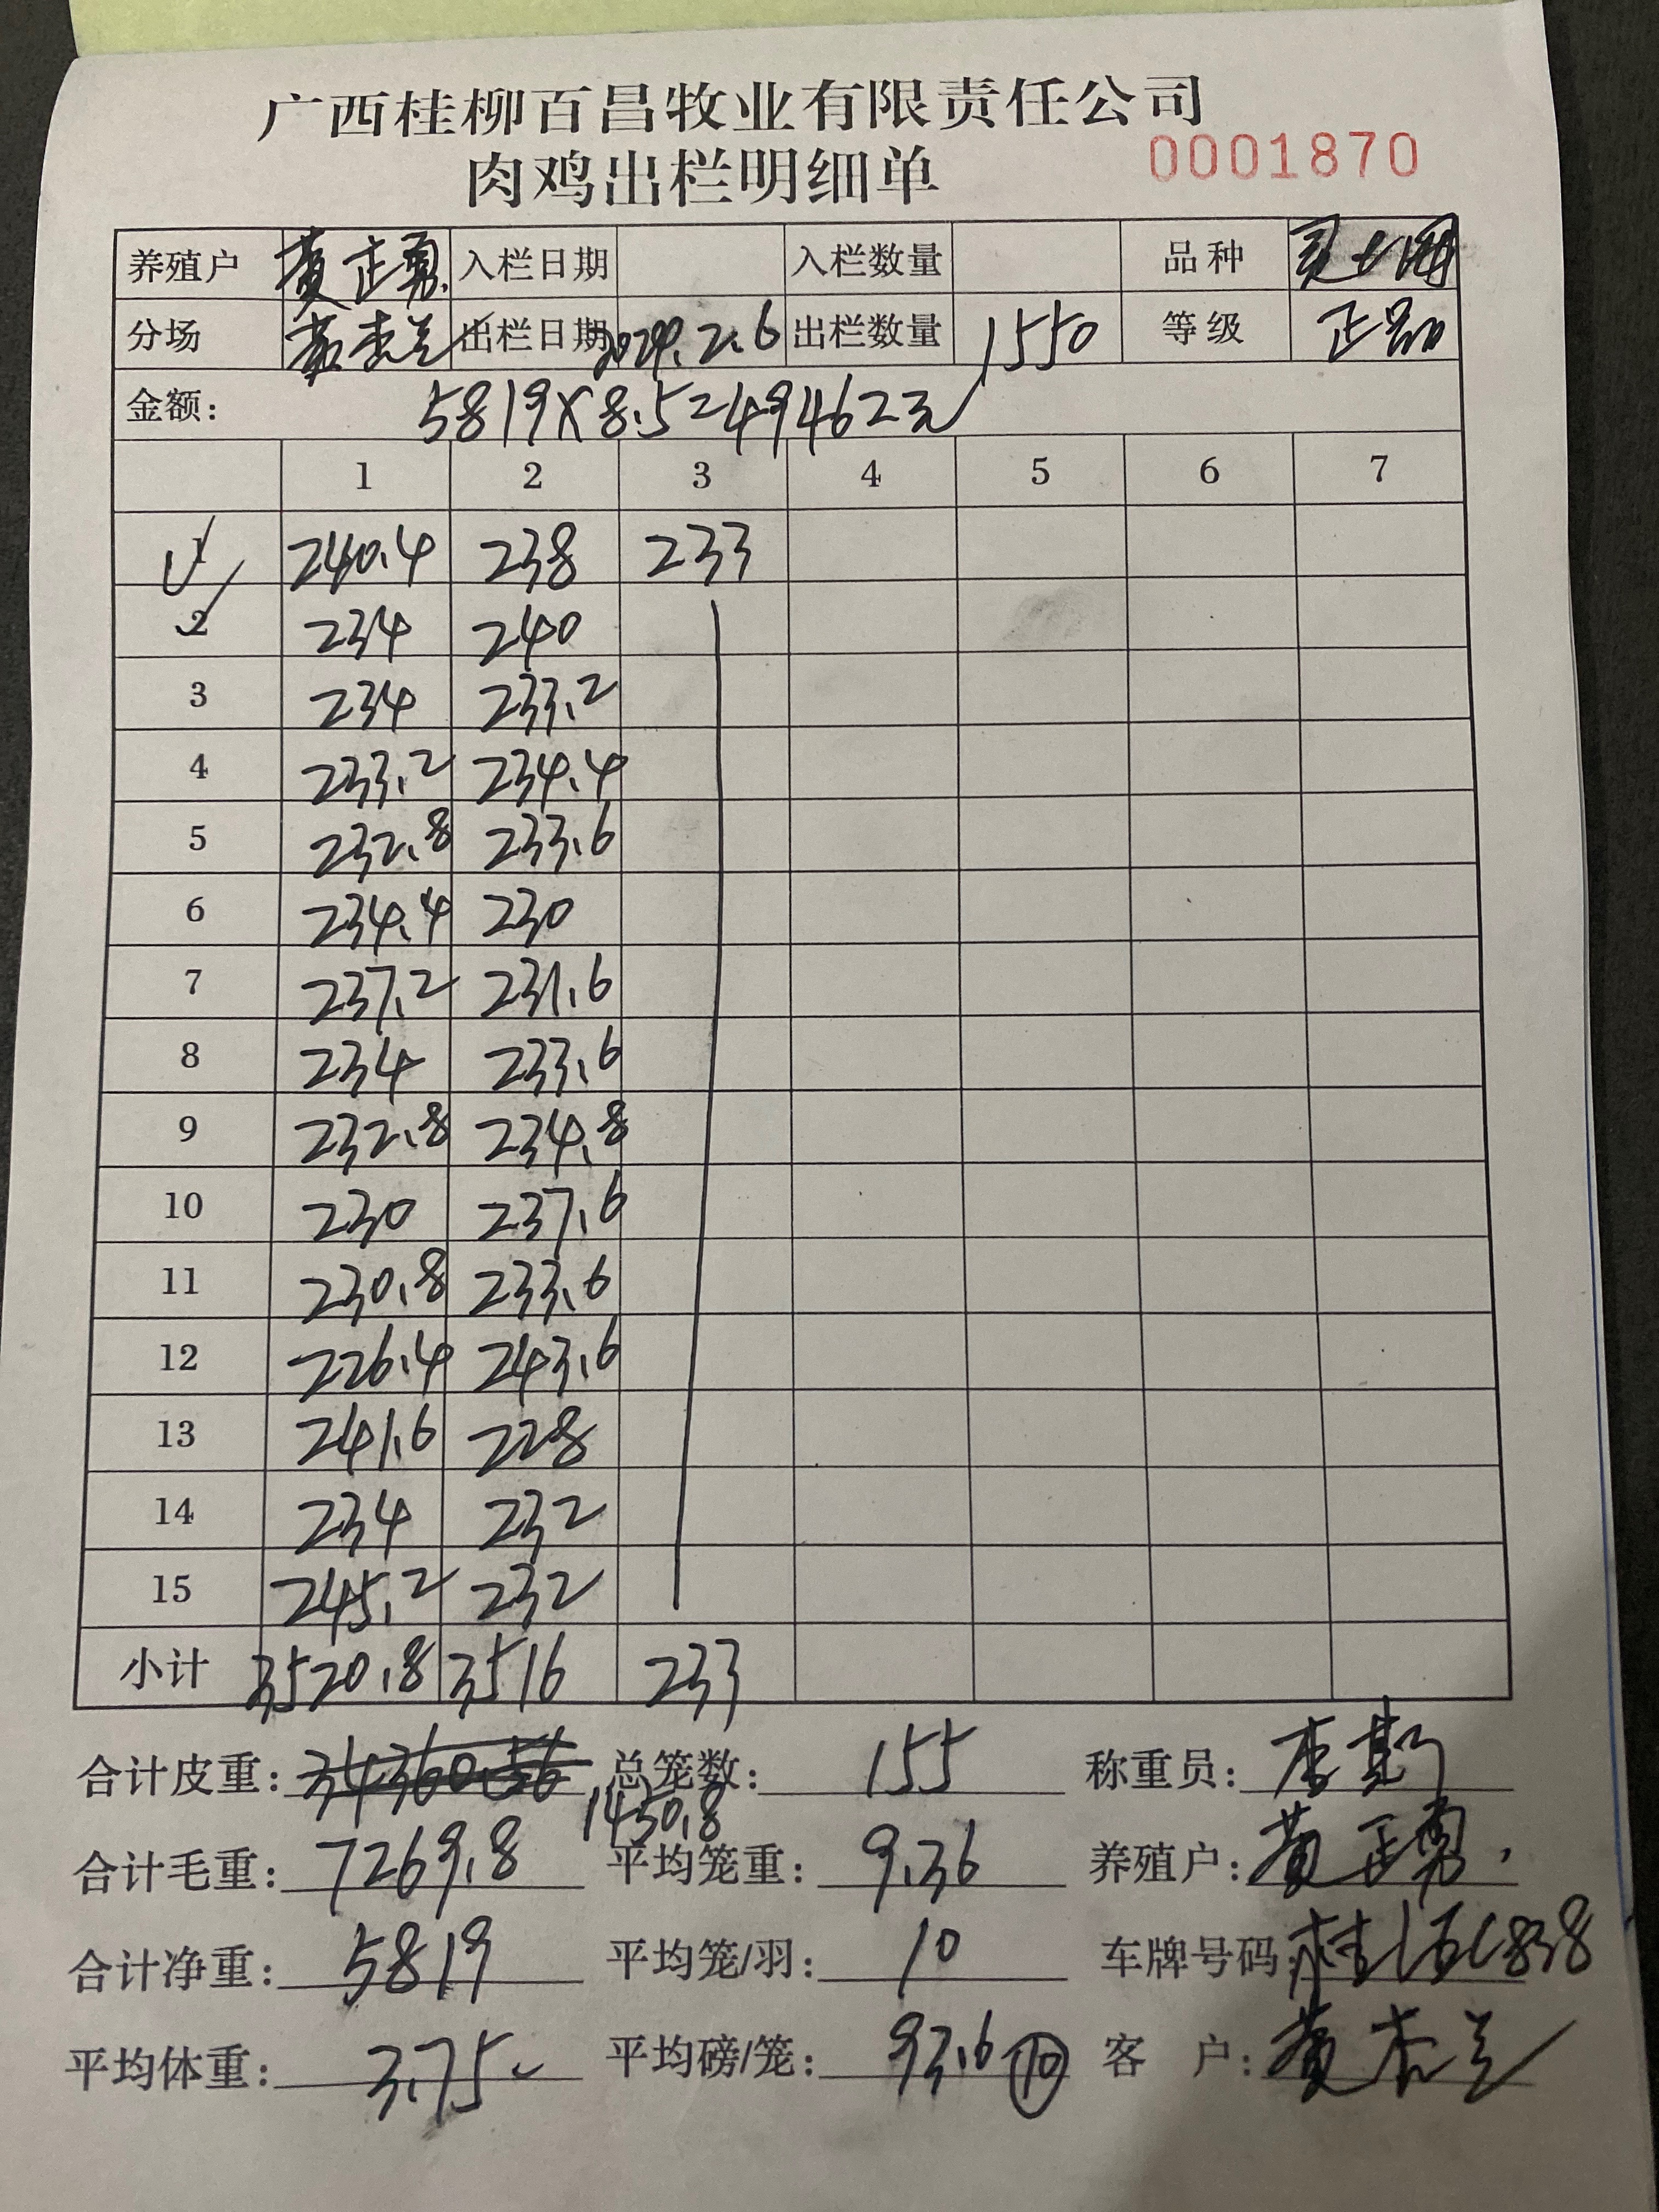 广西桂柳百昌牧业有限责任公司
肉鸡出栏明细单 0001870
养殖户 黄正勇 入栏日期 入栏数量 品种
分场 黄杰兰 出栏日期 2024.2.6 出栏数量 1550 等级 正品
金额: 5819×8.5=49462元
1 2 3 4 5 6 7
1 240.4 238 233
2 234 240
3 234 233.2
4 233.2 234.4
5 232.8 233.6
6 234.4 230
7 237.2 231.6
8 234 233.6
9 232.8 234.8
10 230 237.6
11 230.8 233.6
12 226.4 243.6
13 241.6 228
14 234 232
15 245.2 232
小计 3520.8 3516 233
合计皮重: 1450.8 总笼数: 155 称重员:
合计毛重: 7269.8 平均笼重: 9.36 养殖户: 黄正勇
合计净重: 5819 平均笼/羽: 10 车牌号码:
平均体重: 3.75 平均磅/笼: 93.6 10 客 户: 黄杰兰